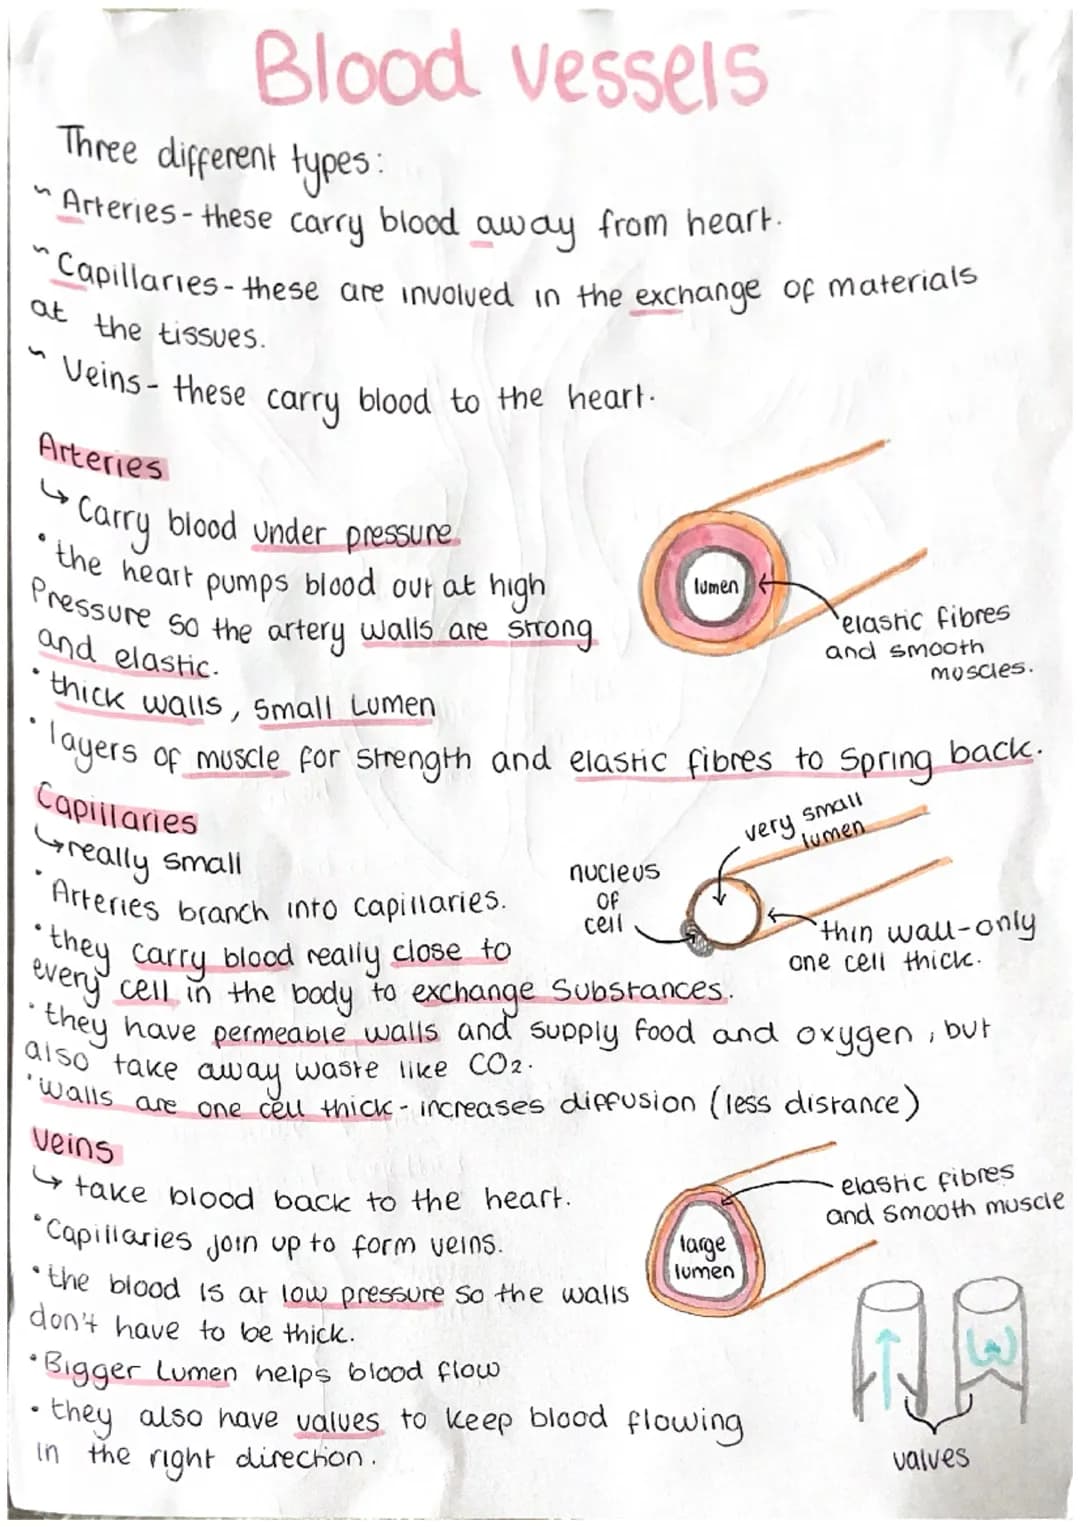 Blood vessels
Three different types:
~ Arteries - these carry blood away from heart.
~ Capillaries - these are involved in the exchange of materials
at the tissues.
~ Veins - these carry blood to the heart.
Arteries
↳ Carry blood under pressure.
• the heart pumps blood out at high
Pressure so the artery walls are strong
and elastic.
• thick walls, small Lumen
• layers of muscle for strength and elastic fibres to spring back.
lumen
elastic fibres
and smooth
muscles.
Capillaries
↳ really small
• Arteries branch into capillaries.
• they carry blood really close to
every cell in the body to exchange substances.
• they have permeable walls and supply food and oxygen, but
also take away waste like CO2.
• walls are one cell thick - increases diffusion (less distance)
very small
lumen
nucleus
of
cell
thin wall-only
one cell thick.
Veins
↳ take blood back to the heart.
• Capillaries join up to form veins.
• the blood is at low pressure so the walls
don't have to be thick.
• Bigger Lumen helps blood flow
• they also have valves to keep blood flowing
in the right direction.
large
lumen
elastic fibres
and smooth muscle
valves